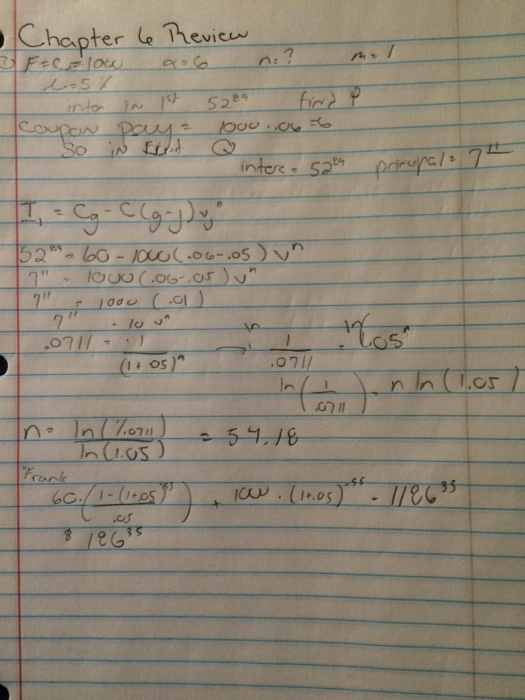 Chapter 6 Review
① F=C=1000 α=6 n=? m=1
i=5%
inter in 1st 52⁸⁹ find P
Coupon pay = 1000 · .06 = 6
So in first
intere = 52⁸⁹ principal = 7¹¹
I₁ = Cg - C(g-j)vⱼⁿ
52⁸⁹ = 60 - 1000(.06-.05)vⁿ
7¹¹ = 1000(.06-.05)vⁿ
7¹¹ = 1000(.01)
7¹¹ = 10vⁿ
.0711 = 1/(1+.05)ⁿ → ln 1/.0711 = ln 1.05ⁿ
ln(1/.0711) = n ln(1.05)
n = ln(1/.0711)/ln(1.05) = 54.18
Frank
60·((1-(1+.05)⁻⁵⁵)/.05) + 1000·(1+.05)⁻⁵⁵ = 1186³⁵
$ 186³⁵